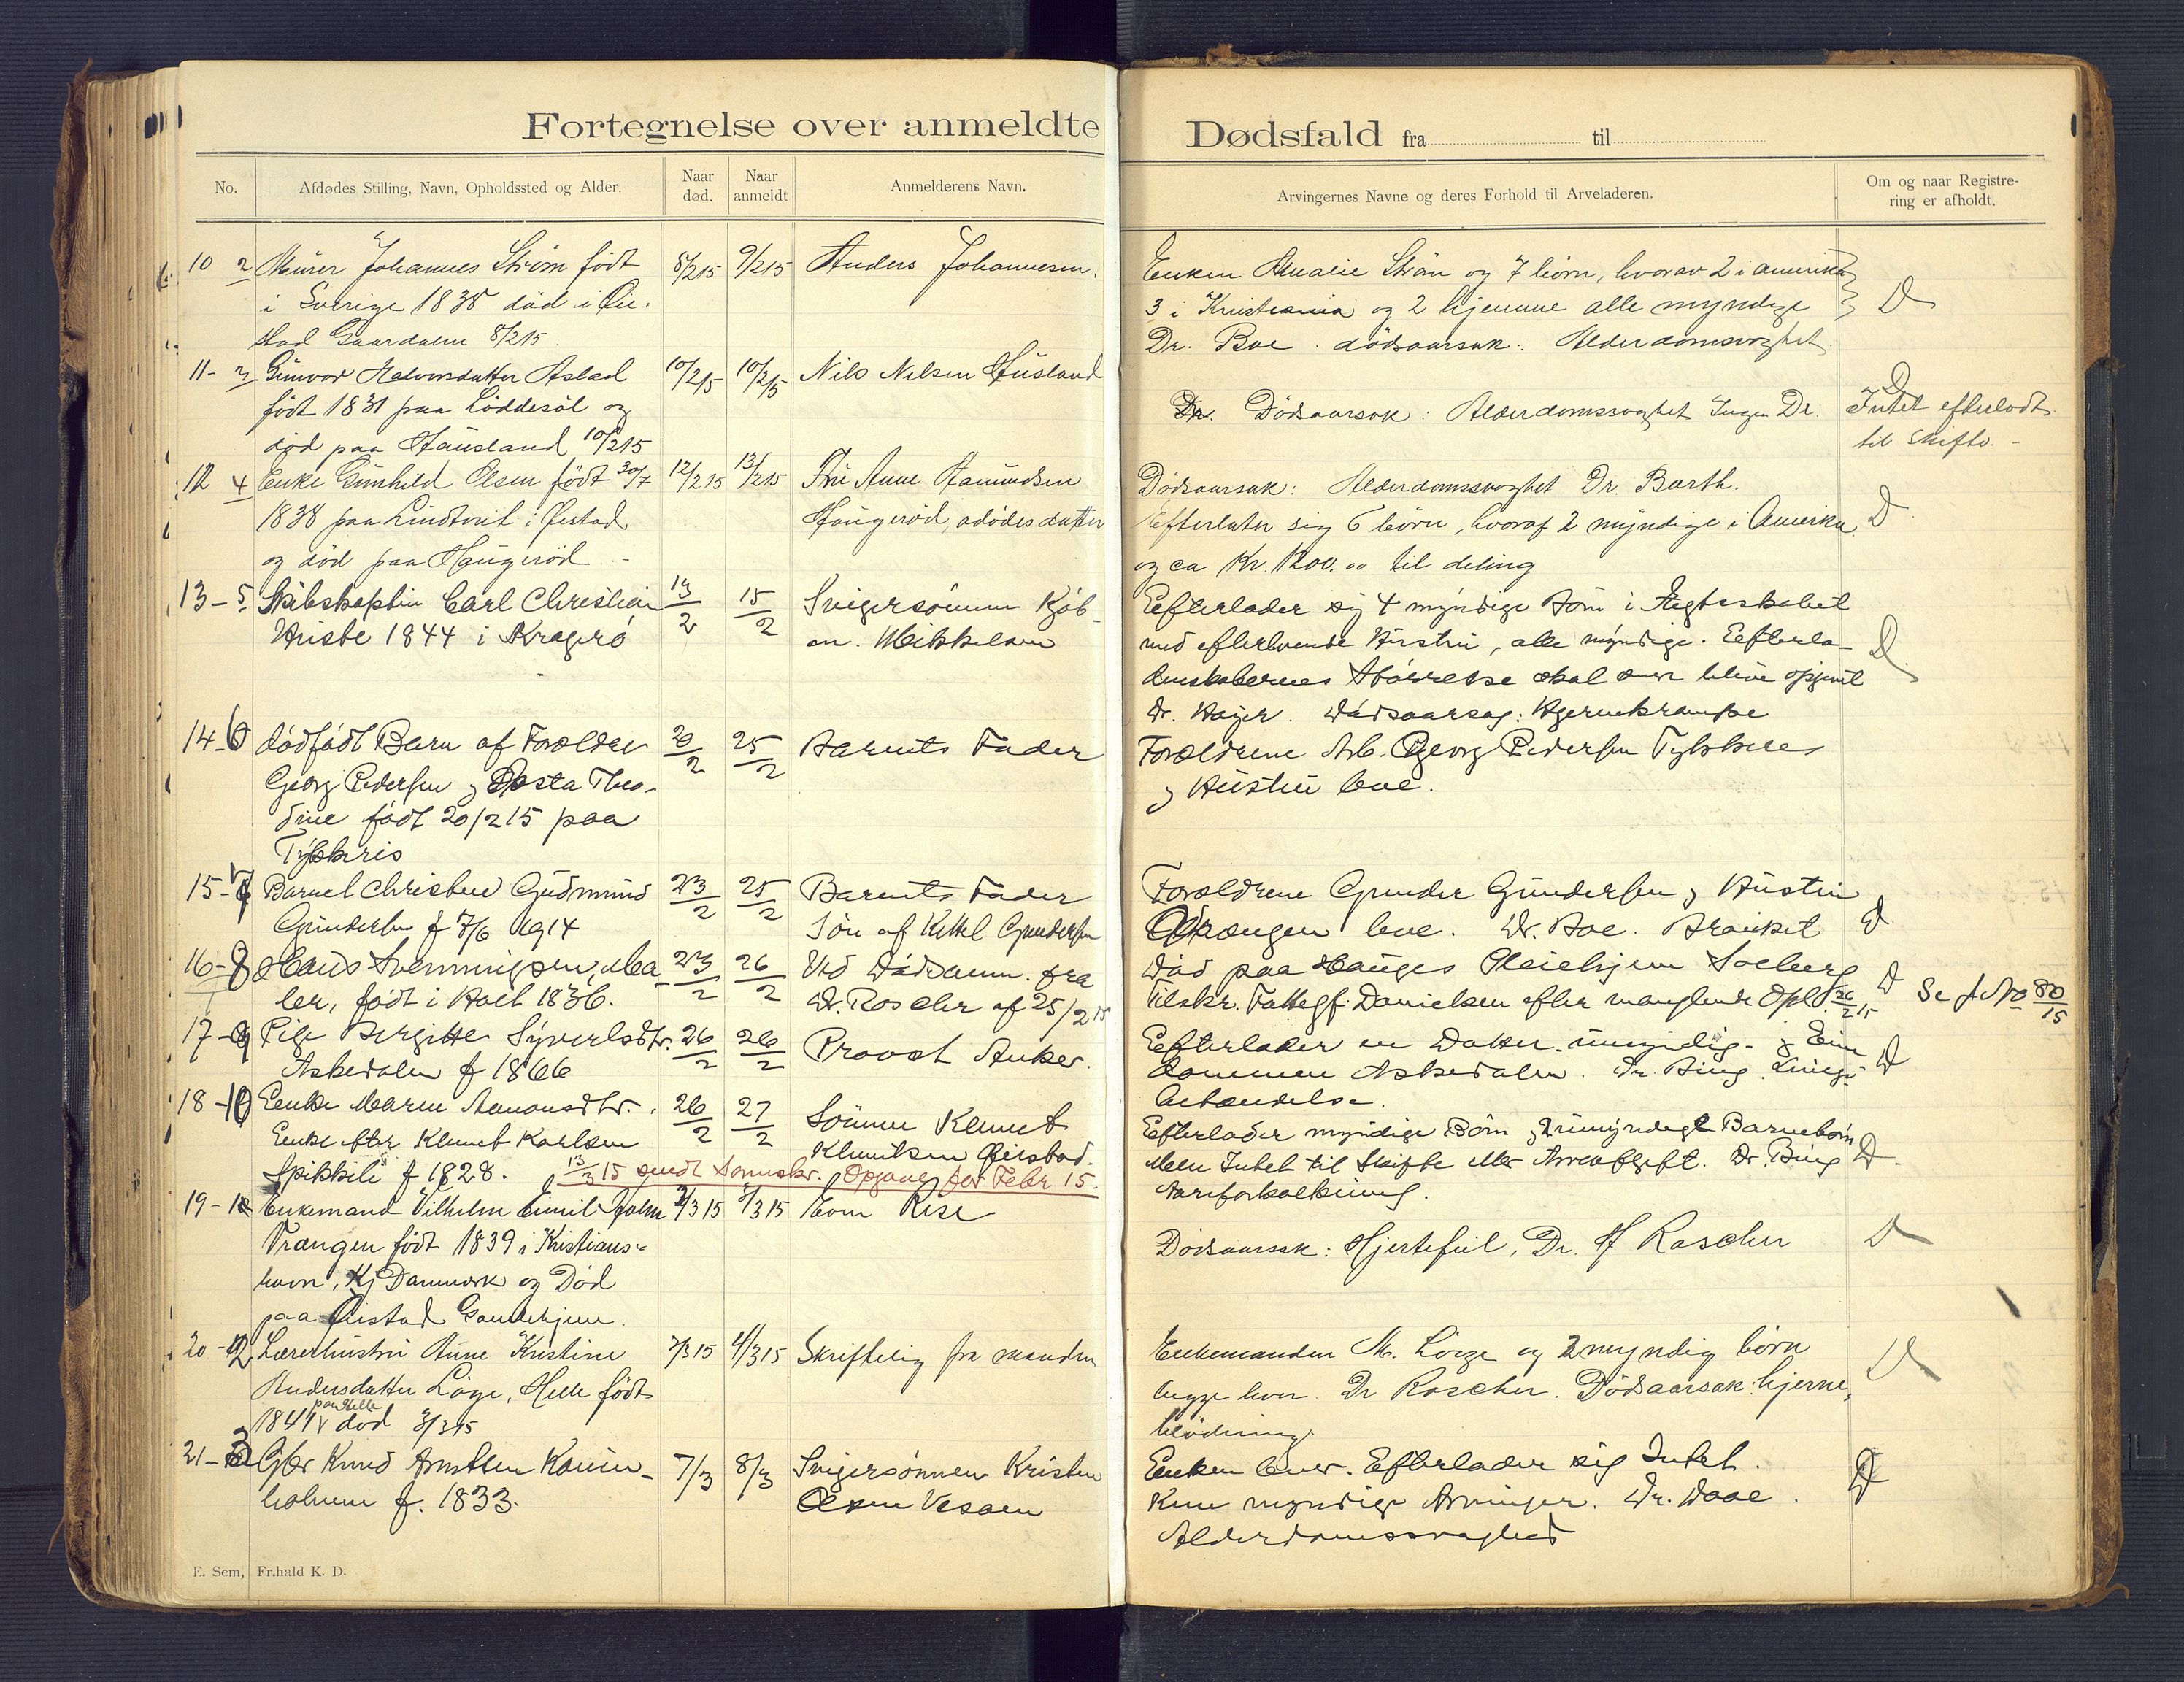 Fortegnelse over anmeldte Dødsfald fra til
No.
Afdødes Stilling, Navn, Opholdssted og Alder.
Naar død.
Naar anmeldt
Anmelderens Navn.
Arvingernes Navne og deres Forhold til Arveladeren.
Om og naar Registrering er afholdt.
10 2 Murer Johannes Strøm født
i Sverige 1835 død i Øie-
stad Gaardalen 8/2 15.
8/2 15 9/2 15 Anders Johannesen.
Enken Amalie Strøm og 7 børn, hvorav 2 i amerika
3 i Kristiania og 2 hjemme alle myndige
Dr. Boe. dødsaarsak: Alderdomssvaghet.
D
11- 3 Gunvor Halvorsdatter Aslad
født 1831 paa Løddesøl og
død paa Hausland 10/2 15
10/2 15 10/2 15 Nils Nilsen Hausland
Dr. Dødsaarsak: Alderdomssvaghet Ingen Dr.
D
Intet efterladt
til skifte. -
12 4 Enke Gunhild Olsen født 30/7
1838 paa Lindtveit i Øiestad
og død paa Haugerød. -
12/2 15 13/2 15 Fru Anne Aamundsen
Haugerød, adødes datter
Dødsaarsak: Alderdomssvaghet Dr. Barth.
Efterlater sig 6 børn, hvoraf 2 myndige i Amerika
og ca Kr. 1200.00 til deling
D
13 - 5 Skibskaptein Carl Christian
1844 i Kragerø
13/2 15/2 Svigersønnen Kjøb-
m. Mikkelsen
Efterlader sig 4 myndige Børn i Ægteskabet
med efterlevende Hustru, alle myndige. Efterla-
denskabernes Størrelse skal blive opgivet
Dr. Høyer. Dødsaarsag: Hjernekrampe
D.
14-6 dødfødt Barn af Forældre
Georg Pedersen og Theo-
dine født 20/2 15 paa
20/2 25/2 Barnets Fader
Forældrene Arb. Georg Pedersen
og Hustru leve.
15-7 Barnet Christen Gudmund
Gundersen f 7/6 1914
23/2 25/2 Barnets Fader
Søn af Kittel Gundersen
Forældrene Gunder Gundersen og Hustru
Vrængen leve. Dr. Boe. Bronkit
D
16-8 Hans Svenningsen, Ma-
ler, født i Holt 1836.
23/2 26/2 Ved Dødsanm. fra
Dr. Roscher af 25/2 15
Død paa Hauges Pleiehjem Solberg
Tilskr. Fattegf. Danielsen efter manglende Opl. 26/2 15
D Se A No 80/15
17-9 Pige Bergitte Syvertsdtr.
Askedalen f 1866
26/2 26/2 Provst Anker.
Efterlader en Datter umyndig - og Ein-
dommen Askedalen. Dr. Bing. Lunge-
betændelse.
D
18-10 Enke Maren Aanonsdtr.,
Enke efter Klemet Karlsen
Spikkeli f 1828.
26/2 27/2 Sønnen Klemet
Klemitsen Øiestad.
Efterlader myndige Børn og 2 umyndige Barnebørn
Men Intet til Skifte eller Arveafgift. Dr. Bing
Aareforkalkning.
D.
13/3 15 sendt Sorenskr. Opgave for Febr 15.
19-11 Enkemand Vilhelm Emil Holm
Vrængen født 1839 i Kristians-
havn, Kj Danmark og Død
paa Øiestad Gamlehjem.
2/3 15 3/3 15 Even Rise
Dødsaarsak: Hjertefeil, Dr. H Roscher
D
20-12 Lærerhustru Anne Kristine
Andersdatter Løge, Helle født
1841 paa Helle død 3/3 15
3/3 15 4/3 15 Skriftelig fra manden
Enkemanden M. Løge og 2 myndig børn
begge hver. Dr Roscher. Dødsaarsak: hjerne-
blødning.
D
21-13 Gbr Knud Arntsen
holmen f. 1833.
7/3 8/3 Svigersønnen Kristen
Olsen Vesøen
Enken lever. Efterlader sig Intet.
Kun myndige Arvinger. Dr. Daae.
Alderdomssvaghed
D
E. Sem, Fr.hald K. D.